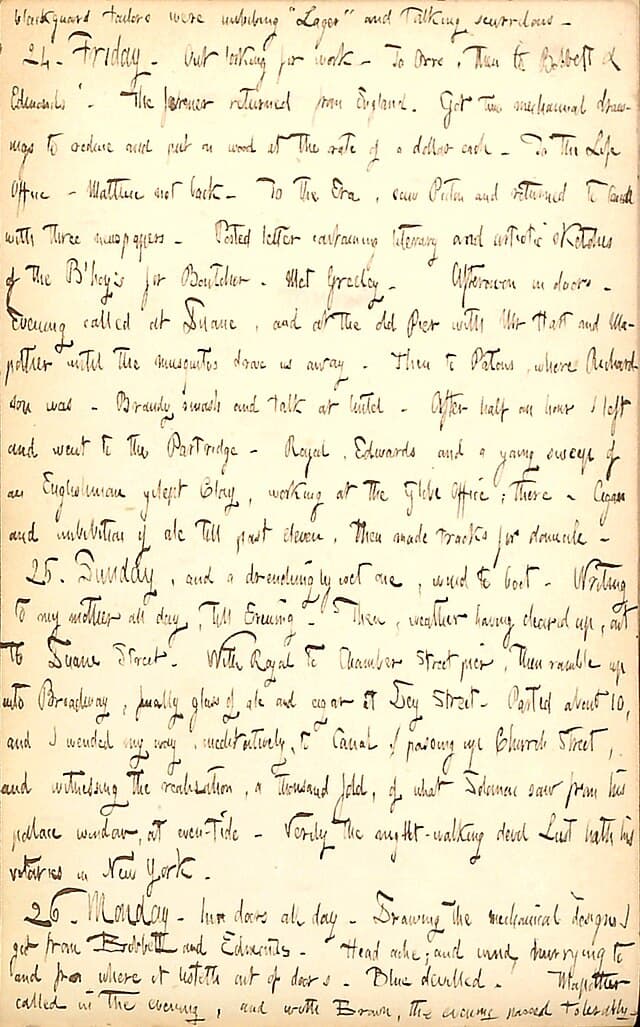 blackguard tailors were imbibing "Lager" and talking scurrilous -
24. Friday - Out looking for work - To Orrs, then to Bobbett &
Edmonds' - The former returned from England. Got two mechanical draw-
ings to reduce and put on wood at the rate of a dollar each - To the Life
Office - Matthew not back - To the Era, saw Piton and returned to Canal
with three newspapers - Posted letter containing literary and artistic sketches
of the B'hoys for Boutcher. Met Greeley - Afternoon in doors -
Evening called at Duane, and at the old Pier with Mr Hart and Ma-
pother until the musquitos drove us away - Then to Patons, where Richard-
son was - Brandy smash and talk at hotel - After half an hour I left
and went to the Partridge - Royal, Edwards and a young sweep of
an Englishman yclept Clay, working at the Globe Office; there - Cigar
and imbibition of ale till past eleven, then made tracks for domicile -
25. Sunday, and a drenchingly wet one, wind to boot - Writing
to my mother all day, till Evening - Then, weather having cleared up, out
to Duane Street - With Royal to Chamber Street pier, then ramble up
into Broadway, finally glass of ale and cigar at Dey Street - Parted about 10,
and I wended my way, meditatively, to Canal, passing up Church Street,
and witnessing the realisation, a thousand fold, of what Solomon saw from his
pallace window, at even-tide - Verily the night-walking devil Lust hath his
votaries in New York.
26. Monday - In doors all day - Drawing the mechanical designs I
got from Bobbett and Edmonds - Head ache; and wind hurrying to
and fro where it listeth out of doors - Blue devilled - Mapother
called in the evening, and with Brown, the evening passed tolerably -